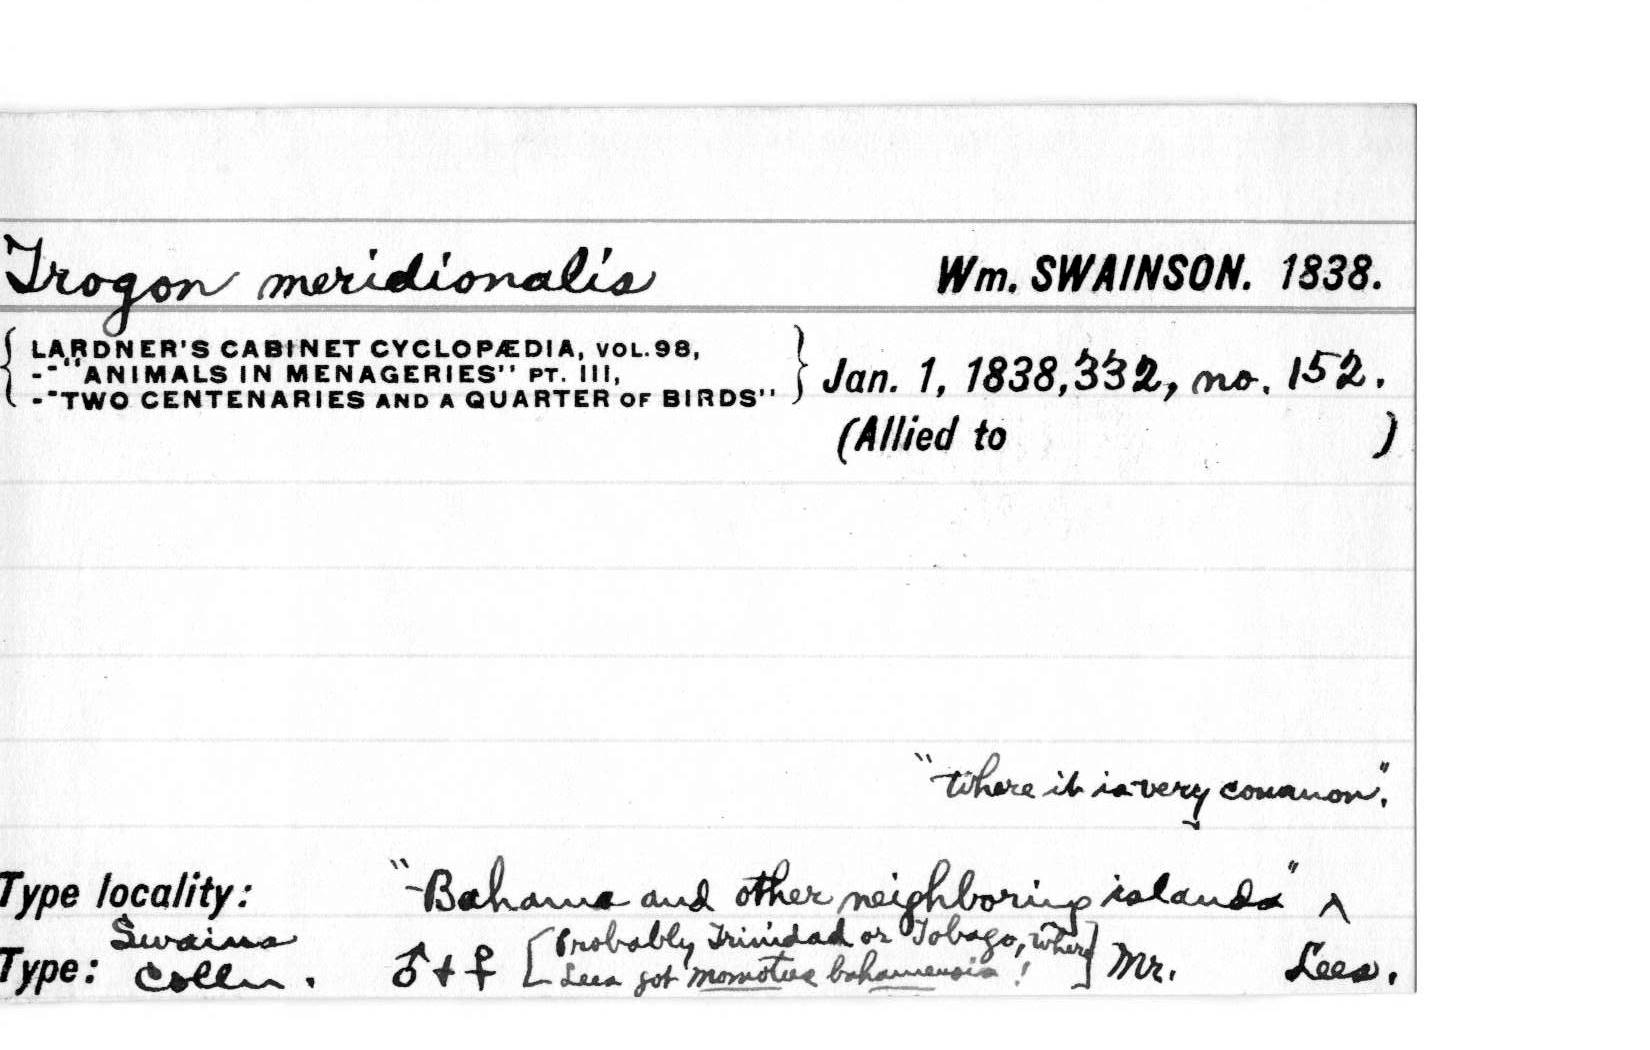 Trogon meridionalis Wm. SWAINSON. 1838.
{ LARDNER'S CABINET CYCLOPÆDIA, VOL. 98,
-"ANIMALS IN MENAGERIES" PT. III,
-"TWO CENTENARIES AND A QUARTER OF BIRDS" } Jan. 1, 1838, 332, no. 152.
(Allied to )
"where it is very common".
Type locality: "Bahama and other neighboring islands" ^
Type: Swains Colln. ♂ + ♀ [Probably Trinidad or Tobago, where
Lees got momotus bahamensis!] Mr. Lees.